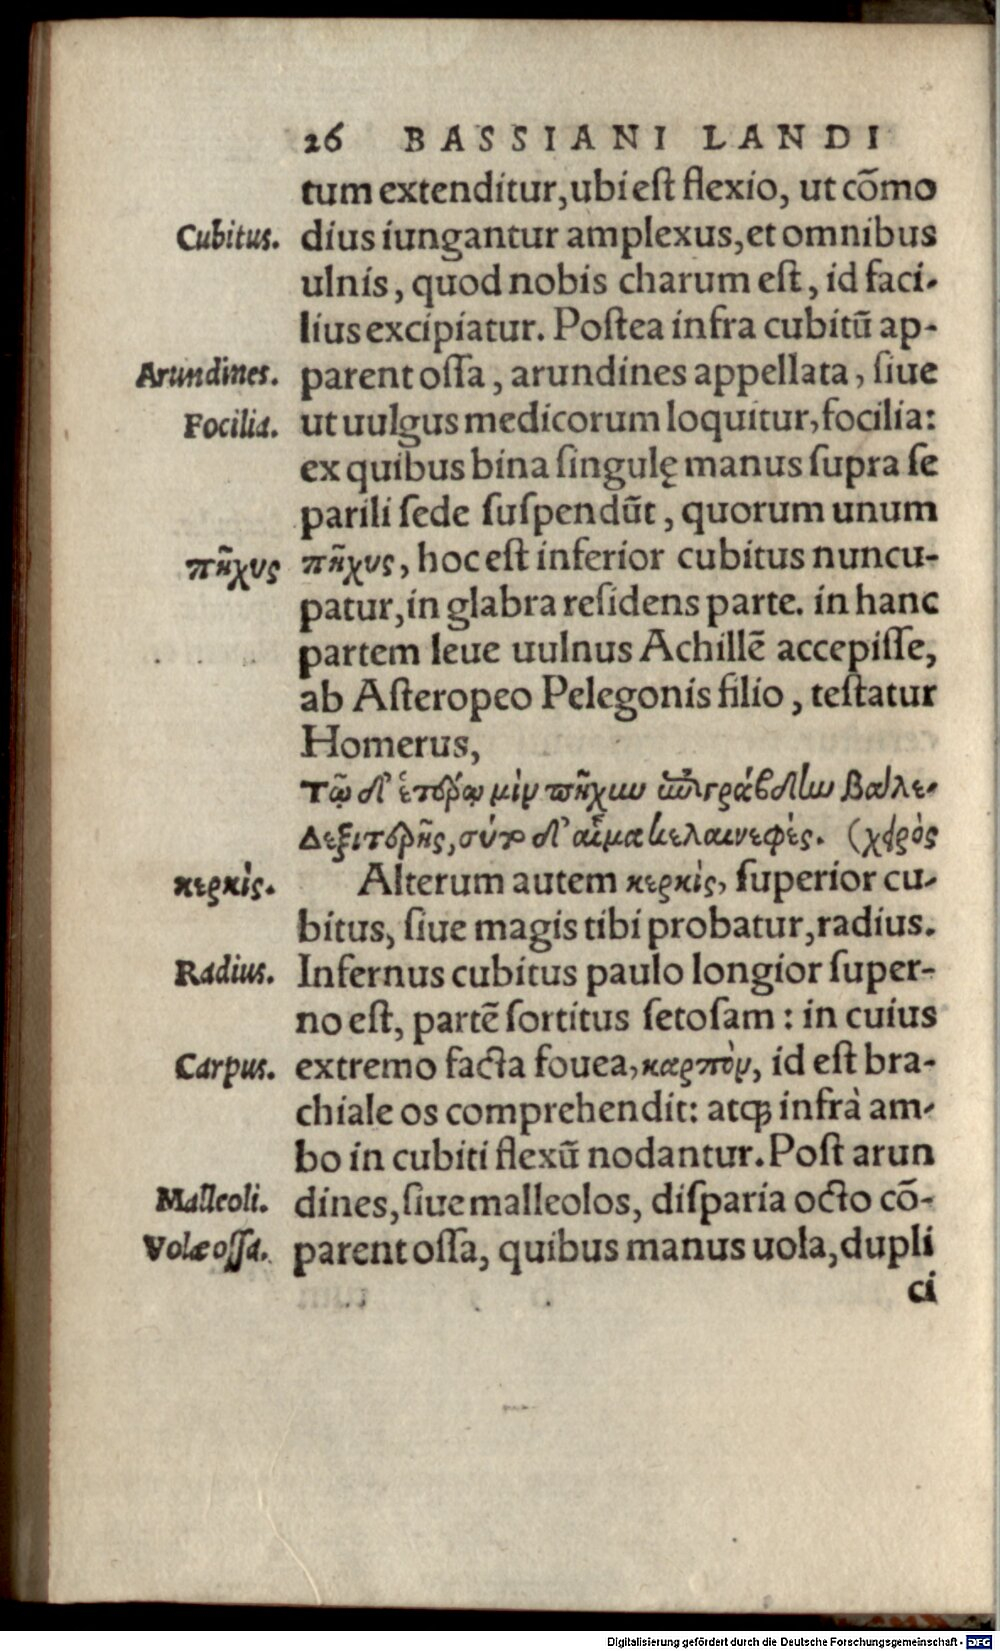 26 BASSIANI LANDI
tum extenditur, ubi est flexio, ut cõmo
Cubitus. dius iungantur amplexus, et omnibus
ulnis, quod nobis charum est, id faci-
lius excipiatur. Postea infra cubitũ ap-
Arundines. parent ossa, arundines appellata, siue
Focilia. ut uulgus medicorum loquitur, focilia:
ex quibus bina singulę manus supra se
parili sede suspendũt, quorum unum
πῆχυς πῆχυς, hoc est inferior cubitus nuncu-
patur, in glabra residens parte. in hanc
partem leue uulnus Achillẽ accepisse,
ab Asteropeo Pelegonis filio, testatur
Homerus,
Τῷ δ' ἑτέρῳ μὶν πῆχυν ἐπιγράβδην βαλε-
Δεξιτερῆς, σύτο δ' αἷμα κελαινεφές. (χειρὸς
κερκὶς. Alterum autem κερκὶς, superior cu-
bitus, siue magis tibi probatur, radius.
Radius. Infernus cubitus paulo longior super-
no est, partẽ sortitus setosam: in cuius
Carpus. extremo facta fouea, καρπὸν, id est bra-
chiale os comprehendit: atq; infrà am-
bo in cubiti flexũ nodantur. Post arun
Malleoli. dines, siue malleolos, disparia octo cõ-
Volæ ossa. parent ossa, quibus manus uola, dupli
ci
Digitalisierung gefördert durch die Deutsche Forschungsgemeinschaft - DFG